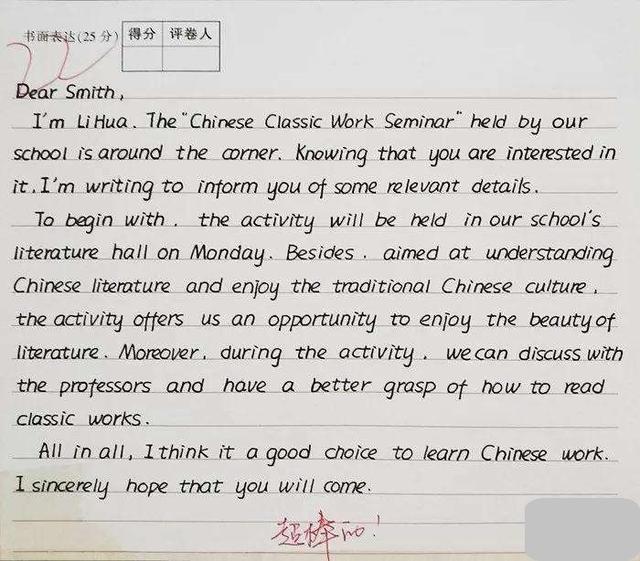 书面表达(25分) 得分 评卷人
22
Dear Smith,
I'm Li Hua. The "Chinese Classic Work Seminar" held by our
school is around the corner. Knowing that you are interested in
it. I'm writing to inform you of some relevant details.
To begin with, the activity will be held in our school's
literature hall on Monday. Besides, aimed at understanding
Chinese literature and enjoy the traditional Chinese culture,
the activity offers us an opportunity to enjoy the beauty of
literature. Moreover, during the activity, we can discuss with
the professors and have a better grasp of how to read
classic works.
All in all, I think it a good choice to learn Chinese work.
I sincerely hope that you will come.
超棒的!